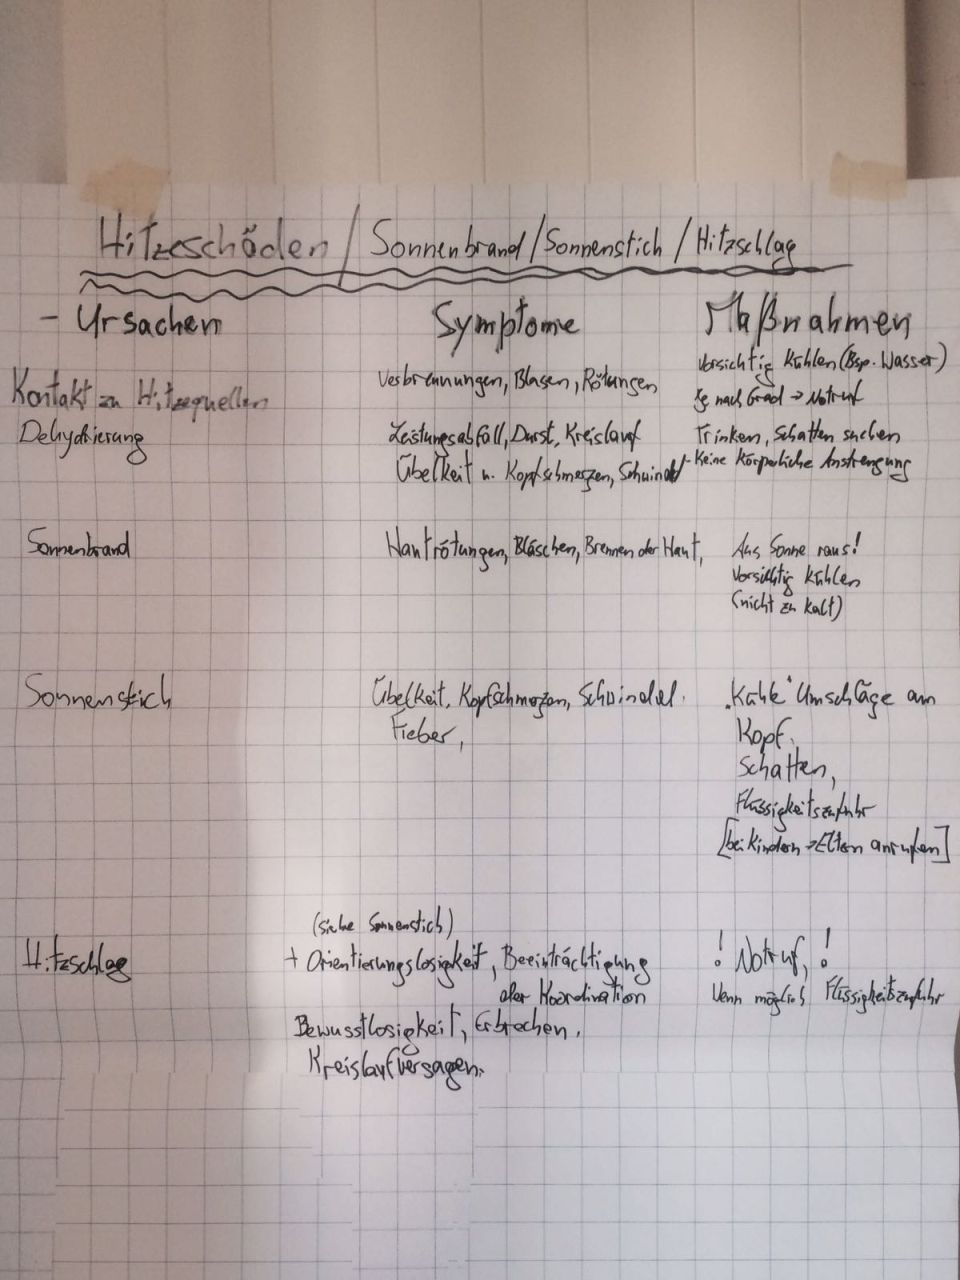 Hitzeschäden / Sonnenbrand / Sonnenstich / Hitzschlag
- Ursachen Symptome Maßnahmen
Kontakt zu Hitzequellen Verbrennungen, Blasen, Rötungen Vorsichtig Kühlen (Bsp. Wasser)
Je nach Grad → Notruf
Dehydrierung Leistungsabfall, Durst, Kreislauf Trinken, Schatten suchen
Übelkeit u. Kopfschmerzen, Schwindel Keine körperliche Anstrengung
Sonnenbrand Hautrötungen, Bläschen, Brennen der Haut, Aus Sonne raus!
Vorsichtig Kühlen
(nicht zu kalt)
Sonnenstich Übelkeit, Kopfschmerzen, Schwindel. „Kühle" Umschläge am
Fieber, Kopf,
Schatten,
Flüssigkeitszufuhr
[bei Kindern → Eltern anrufen]
(siehe Sonnenstich)
Hitzschlag + Orientierungslosigkeit, Beeinträchtigung ! Notruf, !
der Koordination Wenn möglich Flüssigkeitszufuhr
Bewusstlosigkeit, Erbrechen,
Kreislaufversagen.